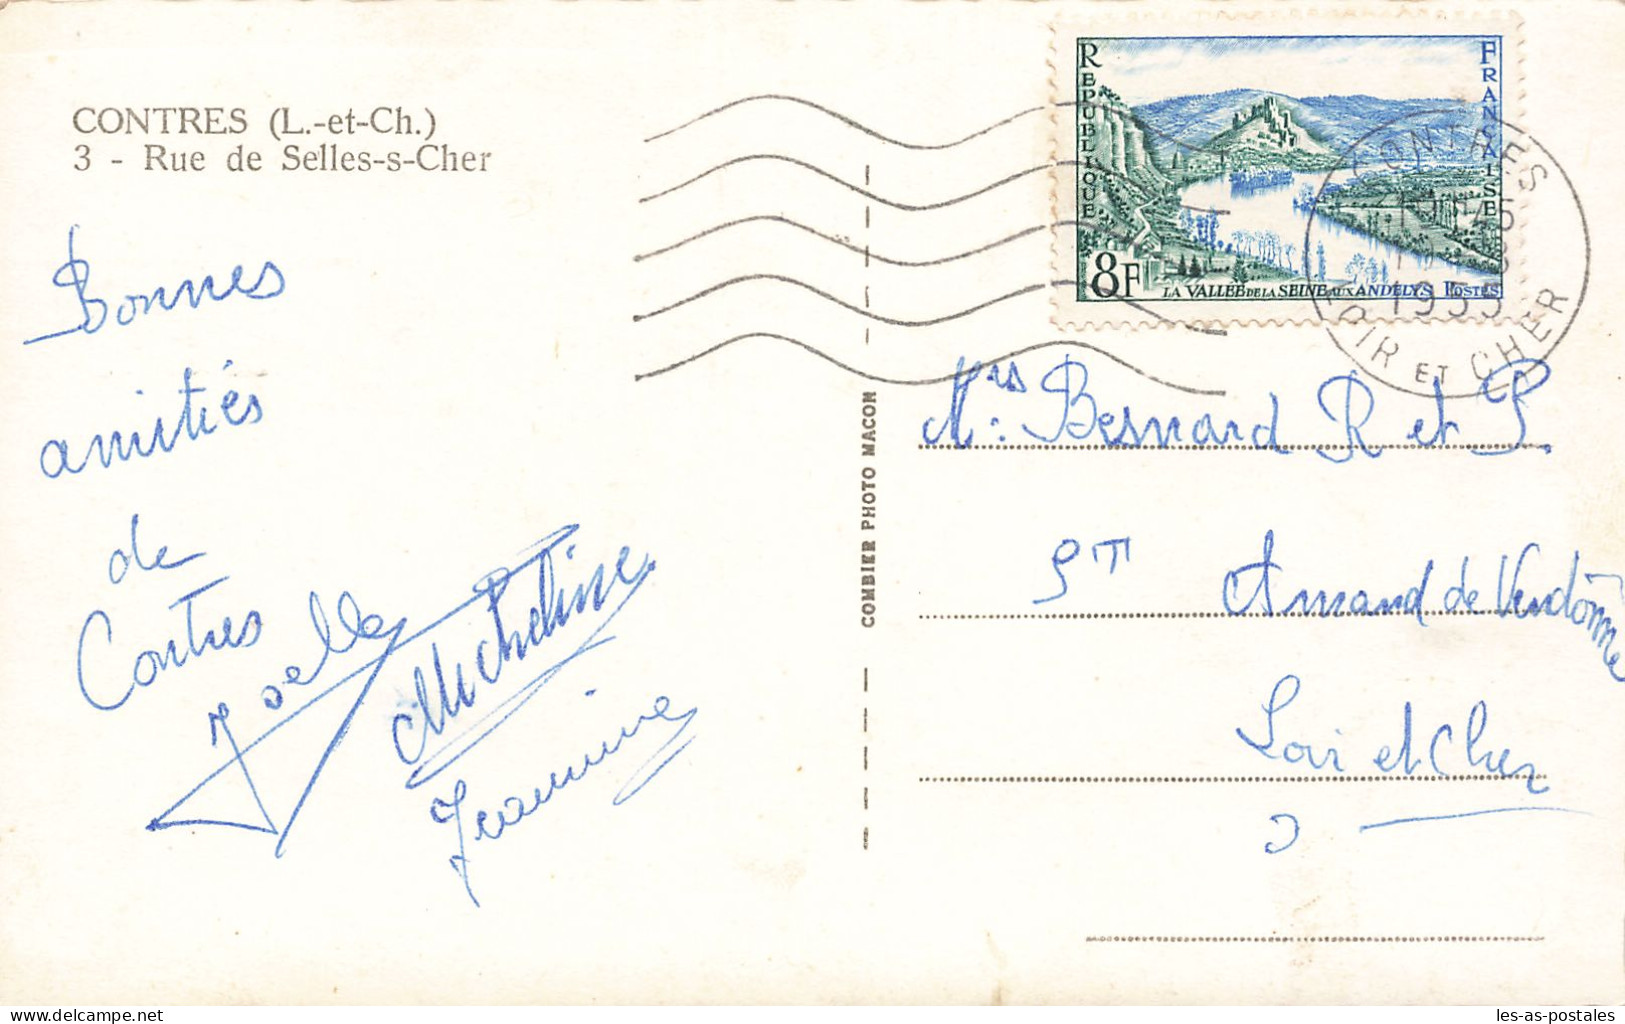 CONTRES (L.-et-Ch.)
3 - Rue de Selles-s-Cher
Bonnes
amitiés
de
Contres
Joelle
Micheline
Jeannine
COMBIER PHOTO MACON
REPUBLIQUE
FRANCAISE
8F
LA VALLEE DE LA SEINE AUX ANDELYS POSTES
CONTRES
1955
LOIR ET CHER
Mrs: Besnard R et P.
ST Amand de Vendôme
Loir et Cher
delcampe.net
les-as-postales